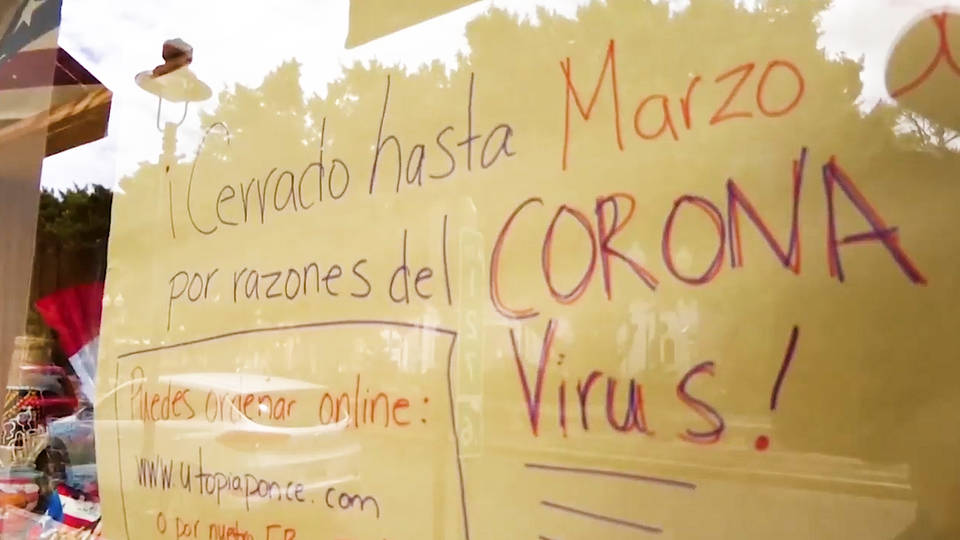 ¡Cerrado hasta Marzo
por razones del CORONA
Virus!
Puedes ordenar online:
www.utopiaponce.com
o por nuestro FB